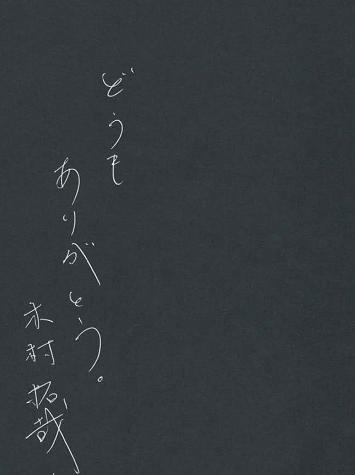 どうも
ありがとう。
木村拓哉